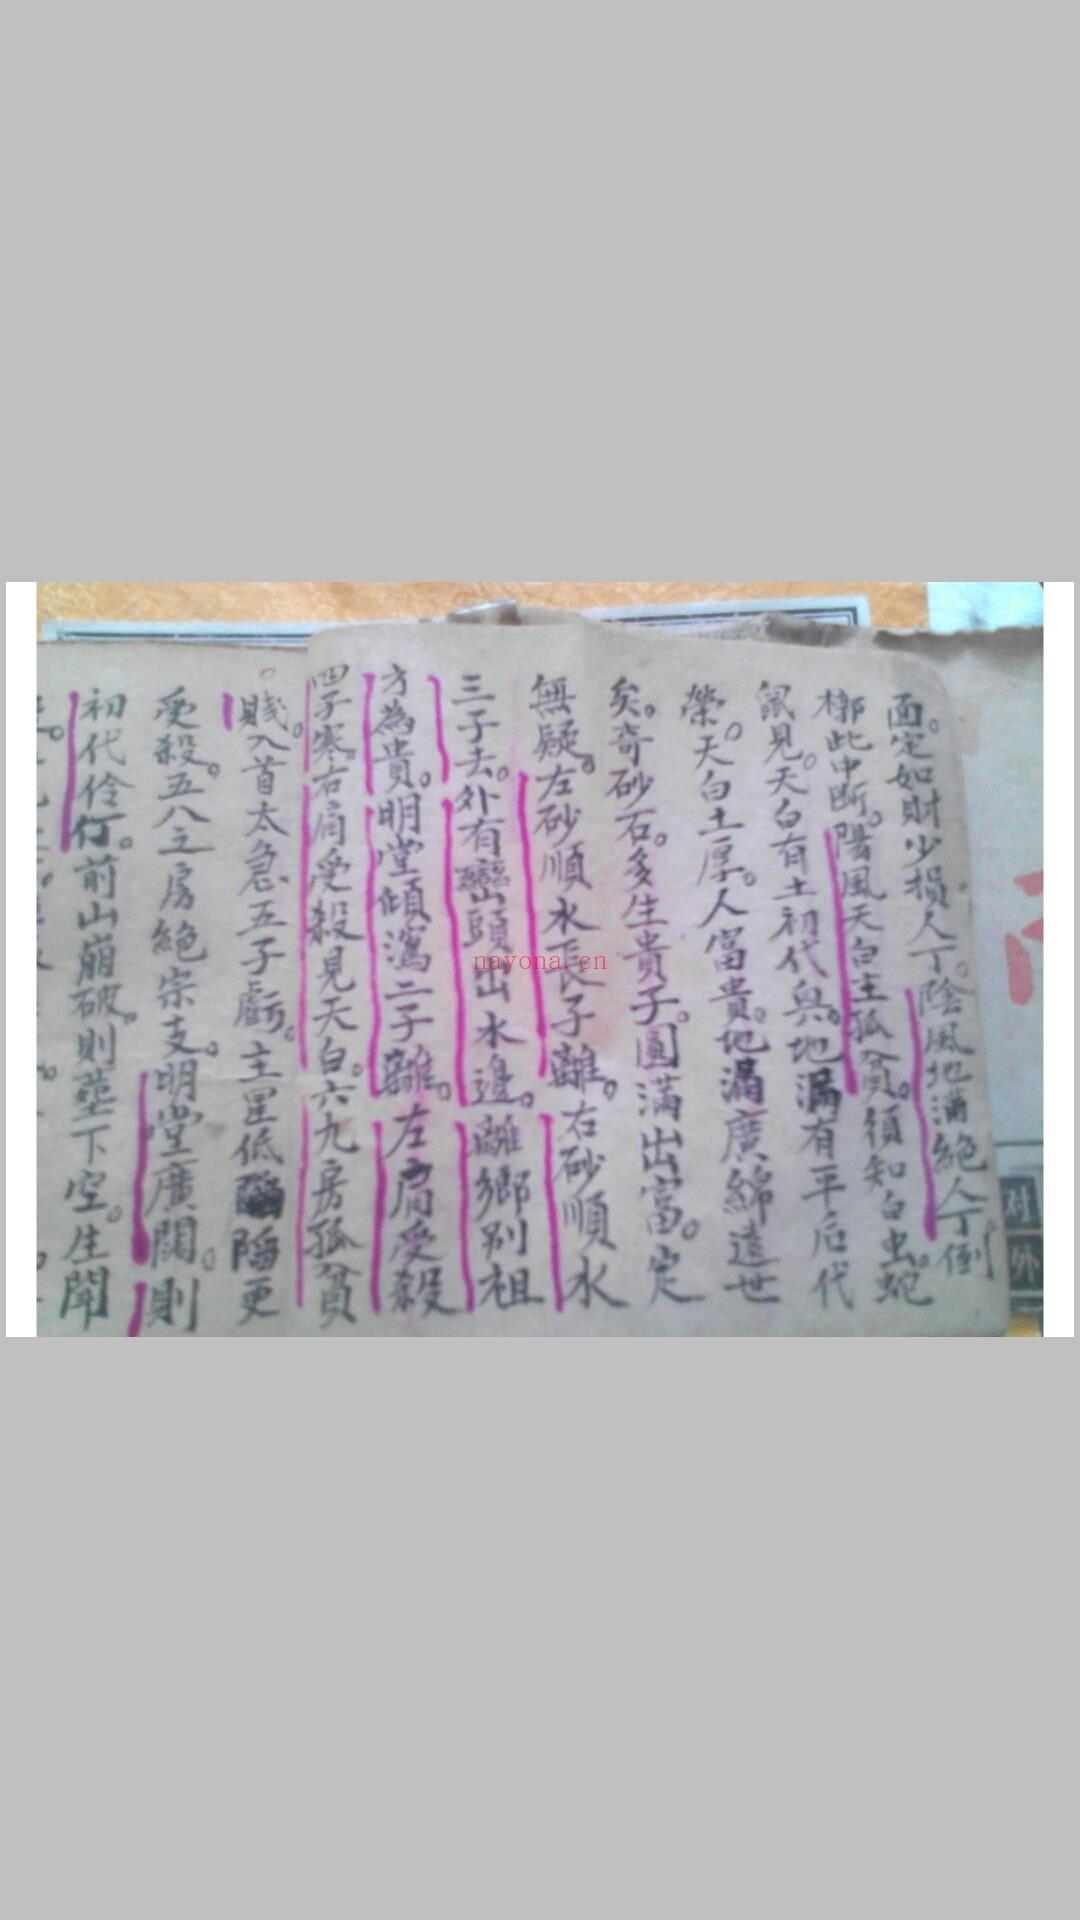 面。定如財少損人丁。陰風地漏絕人丁。倒
擲此中断。陽風天白主孤貧。須知白虫。蛇
鼠見。天白有土初代與。地漏有平后代
榮。天白土厚。人富貴。地漏廣綿遠世
矣。奇砂石。多生貴子。圓满出富。定
無疑。左砂順水長子離。右砂順水
三子去。外有巒頭出水邊。離鄉别祖
方為貴。明堂傾瀉二子離。左肩受殺
四子寒。右肩受殺見天白。六九房孤貧
賤。入首太急五子虧。主星低陷更
受殺。五八之房絕宗支。明堂廣闊。則
初代伶仃。前山崩破。則塋下空。生聞
nayona.cn
对
外